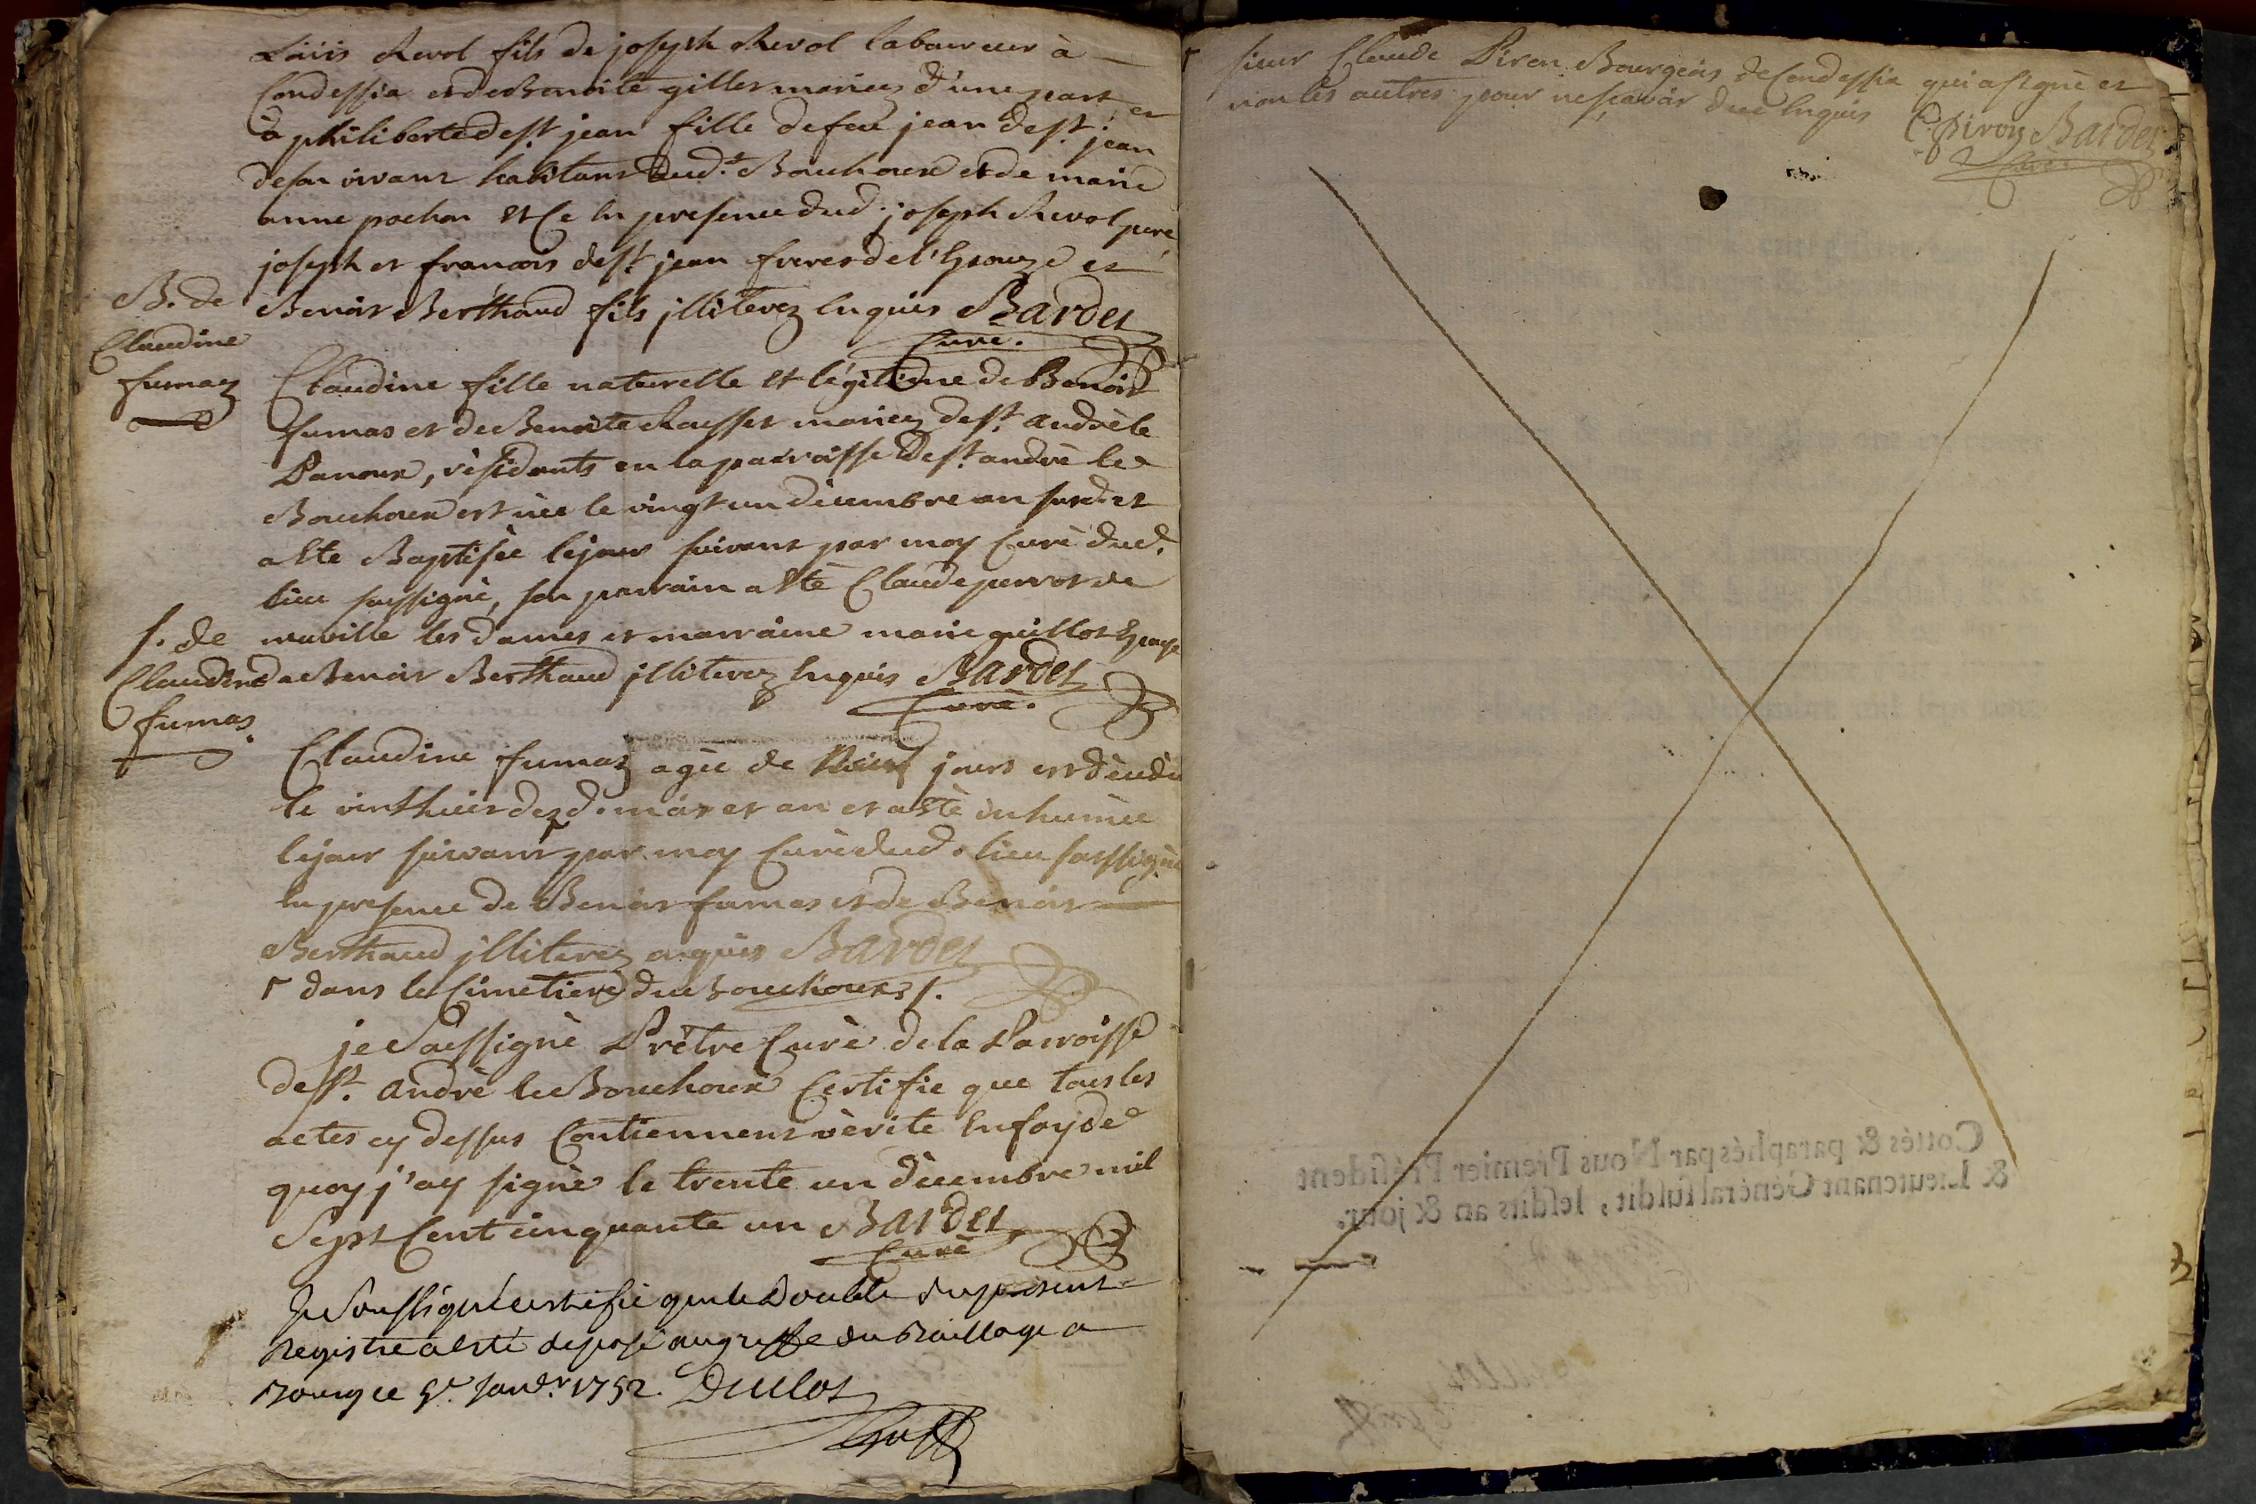 Loüis Revol fils de joseph Revol laboureur à
Condessia et de Benoite giller mariez d'une part et
à philiberte de st. jean fille de feu jean de st. jean
de son vivant habitant dud.t Bouchoux et de marie
anne pochon Et Ce En presence dud. joseph Revol pere,
joseph et francois de st. jean freres de l'Epouze et
Benoit Berthaud fils jlliterez Enquis Bardet
Curé.
B. de
Claudine
fumaz
Claudine fille naturelle et légitime de Benoit
fumas et de Benoite mariez de st. andrè le
Panoux, rèsidants en la parroisse de st. andrè le
Bouchoux est nèe le vingt un dècembre an susd. et
a Ete Baptisèe le jour suivant par moy Curè dud.
lieu soussignè, son parrain a Etè Claude perrot de
neuville les dames et marraine marie guillot Epouse
a Benoit Berthaud jlliterez Enquis Bardet
Curè.
s. de
Claudine
fumas.
Claudine fumaz agèe de huit jours est dècèdèe
le vinthuit desd. mois et an et a Etè inhumèe
le jour suivant par moy Curè dud. lieu soussignè
En presence de Benoit fumas et de Benoit
Berthaud jlliterez enquis Bardet
r dans le Cimetiere du Bouchoux ./.
je Soussignè Prêtre Curè de la Parroisse
de st. andrè le Bouchoux Certifie que tous les
actes cy dessus Contiennent vèrite En foy de
quoy j'ay signè le trente un dècembre mil
Sept Cent cinquante un Bardet
Curè
Je Soussigné certifie que le Double du present
Registre a esté deposé au greffe du Bailliage a
Bourg ce 5e Janvr. 1752. Duclos
Greff
r sieur Claude Piron Bourgeois de Condessia qui a signè et
non les autres pour ne sçavoir duë Enquis C. piron Bardet
Curè
Cottés & paraphés par Nous Premier Président
& Lieutenant Général susdit, lesdits an & jour.